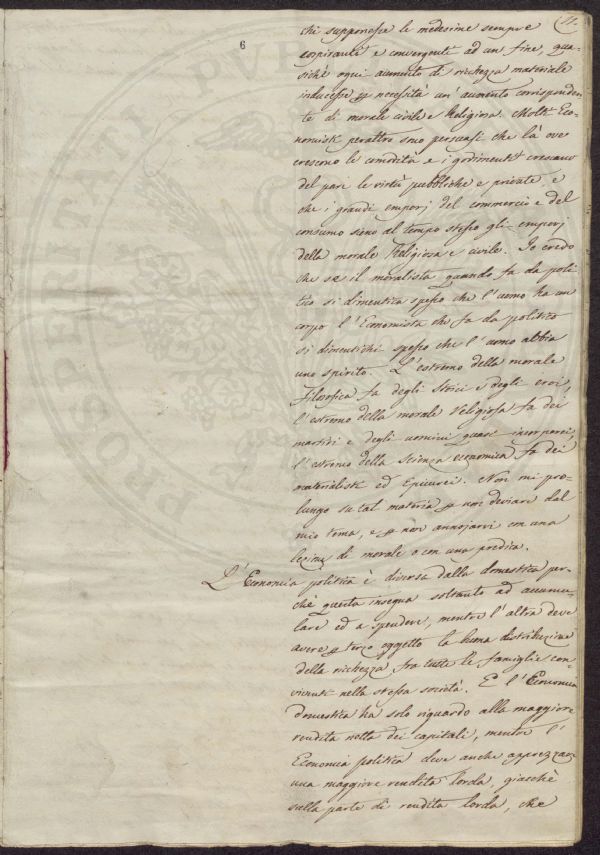 11.
6
chi supponesse le medesime sempre
cospiranti e convergenti ad un fine, qua-
sichè ogni aumento di ricchezza materiale
inducesse p necessità un' aumento corrisponden
te di morale civile e Religiosa. Molti Eco-
nomisti peraltro sono persuasi che là ove
crescono le comodità e i godimenti crescano
del pari le virtù pubbliche e private, e
che i grandi emporj del commercio e del
consumo sieno al tempo stesso gli emporj
della morale Religiosa e civile. Io credo
che se il moralista quando fa da poli-
tico si dimentica spesso che l'uomo ha un
corpo l'Economista che fa da politico
si dimentichi spesso che l'uomo abbia
uno spirito. L'estremo della morale
Filosofica fa degli stoici e degli eroi,
l'estremo della morale Religiosa fa dei
martiri e degli uomini quasi incorporei,
l'estremo della scienza economica fa dei
materialisti ed Epicurei. Non mi pro-
lungo su tal materia p non deviare dal
mio tema, e p non annojarvi con una
lezione di morale o con una predica.
L'Economia politica è diversa dalla domestica per-
chè questa insegna soltanto ad accumu-
lare ed a spendere, mentre l'altra deve
avere p terzo oggetto la buona distribuzione
della ricchezza fra tutte le famiglie con-
viventi nella stessa società. E l'Economia
domestica ha solo riguardo alla maggiore
rendita netta dei capitali, mentre l'
Economia politica deve anche apprezzare
una maggiore rendita lorda, giacchè
sulla parte di rendita lorda, che
PROPELLITANI PVP